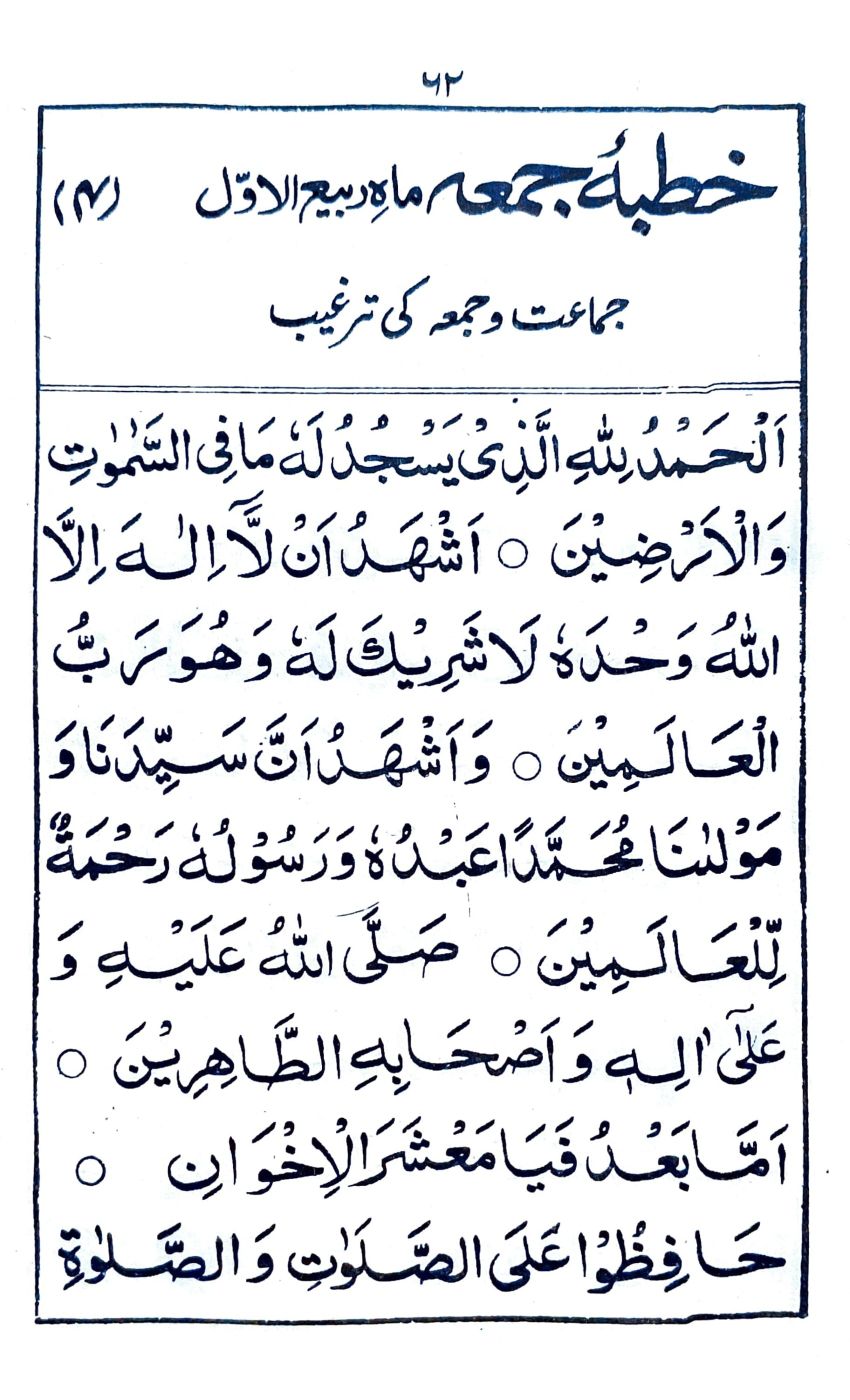 ۶۲
خطبۂ جمعہ ماہِ ربیع الاوّل (۴)
جماعت و جمعہ کی ترغیب
اَلْحَمْدُ لِلّٰهِ الَّذِیْ یَسْجُدُ لَهٗ مَا فِی السَّمٰوٰتِ
وَالْاَرْضِیْنَ ○ اَشْهَدُ اَنْ لَّاۤ اِلٰهَ اِلَّا
اللّٰهُ وَحْدَهٗ لَا شَرِیْكَ لَهٗ وَهُوَ رَبُّ
الْعَالَمِیْنَ ○ وَاَشْهَدُ اَنَّ سَیِّدَنَا وَ
مَوْلٰنَا مُحَمَّدًا عَبْدُهٗ وَرَسُوْلُهٗ رَحْمَةٌ
لِّلْعَالَمِیْنَ ○ صَلَّی اللّٰهُ عَلَیْهِ وَ
عَلٰۤی اٰلِهٖ وَاَصْحَابِهِ الطَّاهِرِیْنَ ○
اَمَّا بَعْدُ فَیَا مَعْشَرَ الْاِخْوَانِ ○
حَافِظُوْا عَلَی الصَّلَوٰتِ وَالصَّلٰوةِ